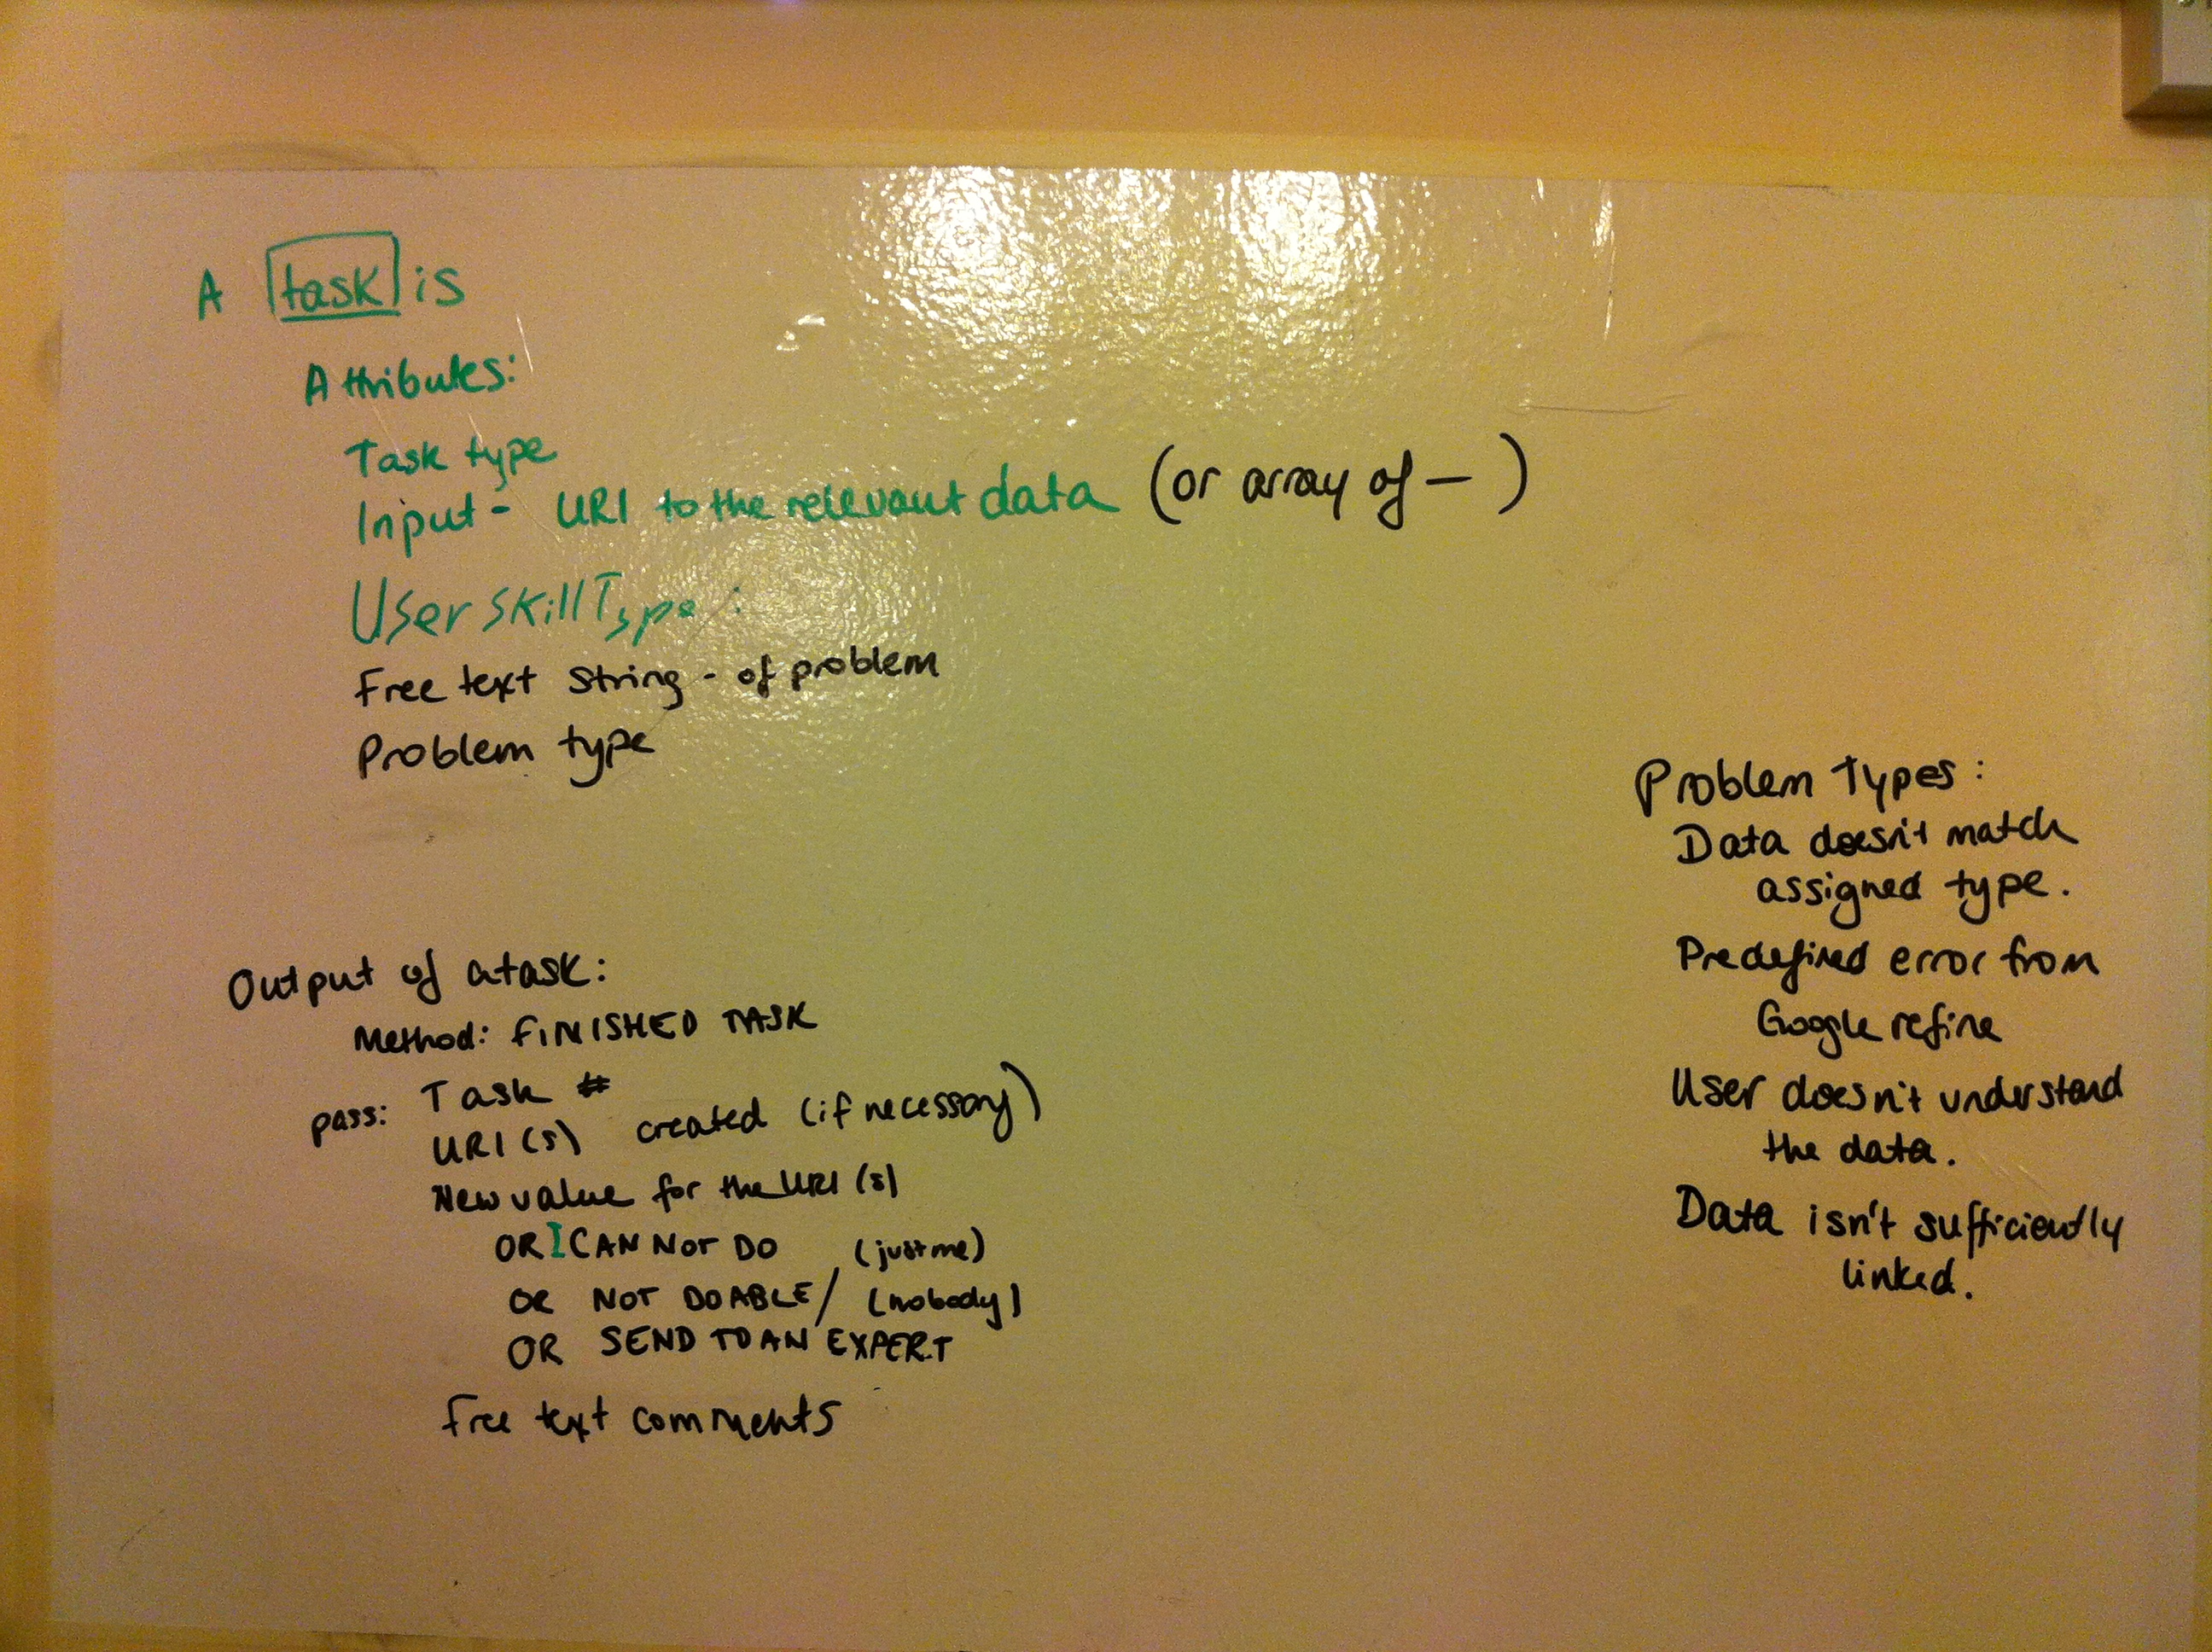 A task is
Attributes:
Task type
Input - URI to the relevant data (or array of — )
User skillType :
Free text string - of problem
Problem type
Output of a task:
Method: FINISHED TASK
pass: Task #
URI(s) created (if necessary)
New value for the URI(s)
OR I CAN NOT DO (just me)
OR NOT DOABLE / (nobody)
OR SEND TO AN EXPERT
Free text comments
Problem Types:
Data doesn't match
assigned type.
Predefined error from
Google refine
User doesn't understand
the data.
Data isn't sufficiently
linked.